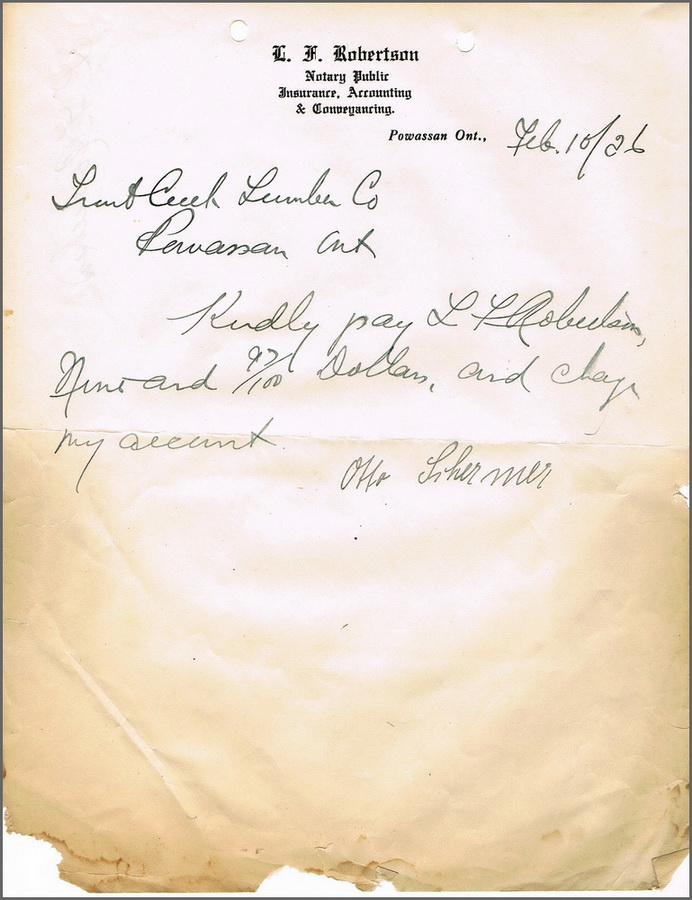 L. F. Robertson
Notary Public
Insurance, Accounting
& Conveyancing.
Powassan Ont., Feb. 10/26
Trout Creek Lumber Co
Powassan Ont
Kindly pay L F Robertson,
Nine and 97/100 Dollars, and charge
my account.
Otto Schermer